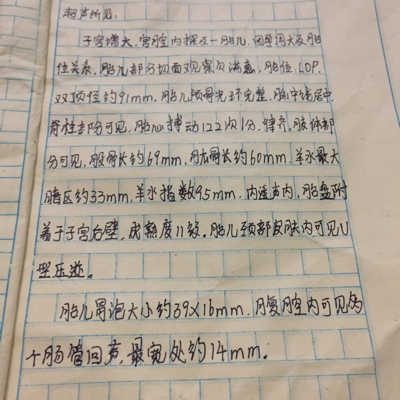 超声所见:
子宫增大,宫腔内探及一胎儿,因孕周大及胎
位关系,胎儿部分切面观察欠满意,胎位LOP,
双顶径约91mm,胎儿颅骨光环完整,脑中线居中,
脊柱部分可见,胎心搏动122次/分,体部
分可见,股骨长约69mm,肱骨长约60mm,羊水最大
暗区约33mm,羊水指数95mm,内透声,胎盘附
着于子宫右壁,成熟度II级,胎儿颈部皮肤内可见U
型压迹。
胎儿胃泡大小约39×16mm,腹腔内可见多
个肠管回声,最宽处约14mm。